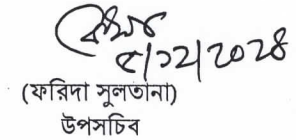 ৫/১২/২০২৪
(ফরিদা সুলতানা)
উপসচিব